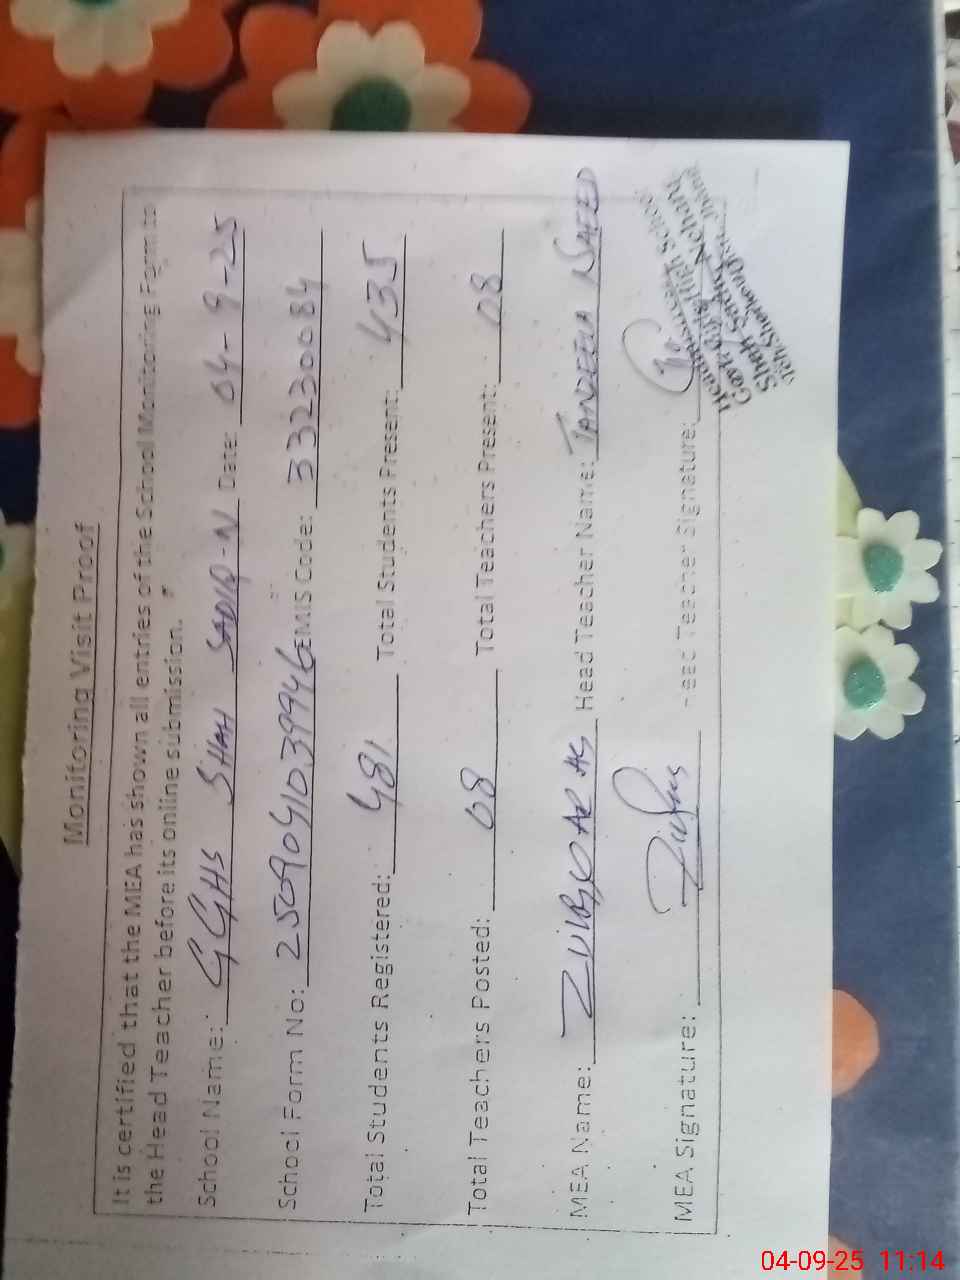 Monitoring Visit Proof
It is certified that the MEA has shown all entries of the School Monitoring Form to
the Head Teacher before its online submission.
School Name: GGHS SHAH SADIQ-N Date: 04-9-25
School Form No: 2509041039946 EMIS Code: 33230084
Total Students Registered: 481 Total Students Present: 435
Total Teachers Posted: 08 Total Teachers Present: 08
MEA Name: Head Teacher Name: TANZEELA SAEED
MEA Signature: Head Teacher Signature:
Headmistress
Govt. Girls High School
Shah Sadiq Nehang
04-09-25 11:14